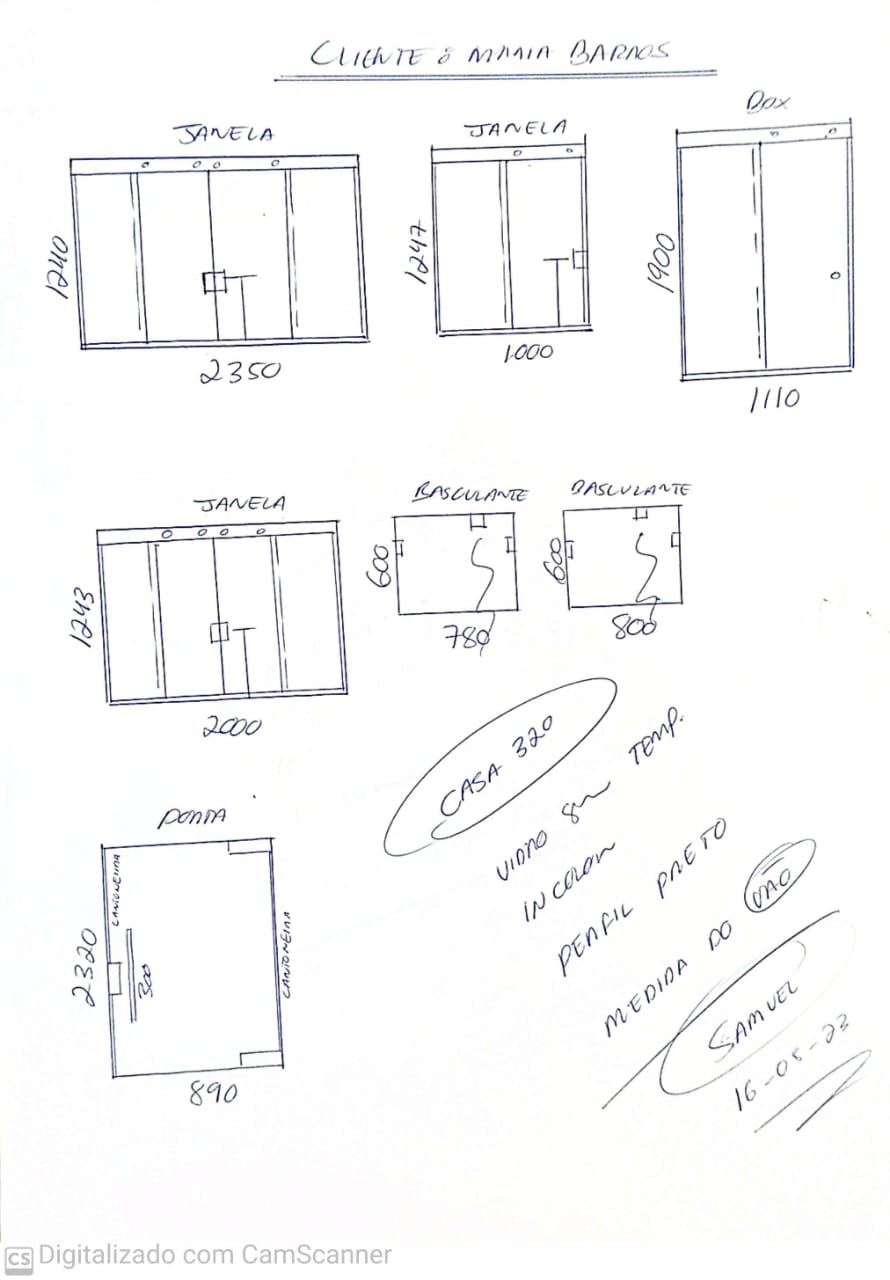 CLIENTE: MARIA BARROS
JANELA
1240
2350
JANELA
1247
1000
BOX
1900
1110
JANELA
1243
2000
BASCULANTE
600
780
BASCULANTE
600
800
CASA 320
VIDRO 8mm TEMP.
INCOLOR
PERFIL PRETO
MEDIDA DO VÃO
SAMUEL
16-05-23
PORTA
CANTONEIRA
CANTONEIRA
2320
300
890
CS Digitalizado com CamScanner